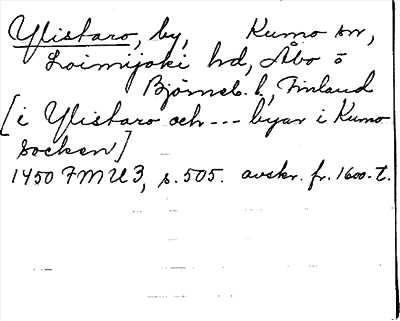 Ylistaro, by, Kumo sn,
Loimijoki hd, Åbo o
Björneb. l., Finland
[i Ylistaro och --- byar i Kumo
socken]
1450 FMU 3, s. 505. avskr. fr. 1600-t.